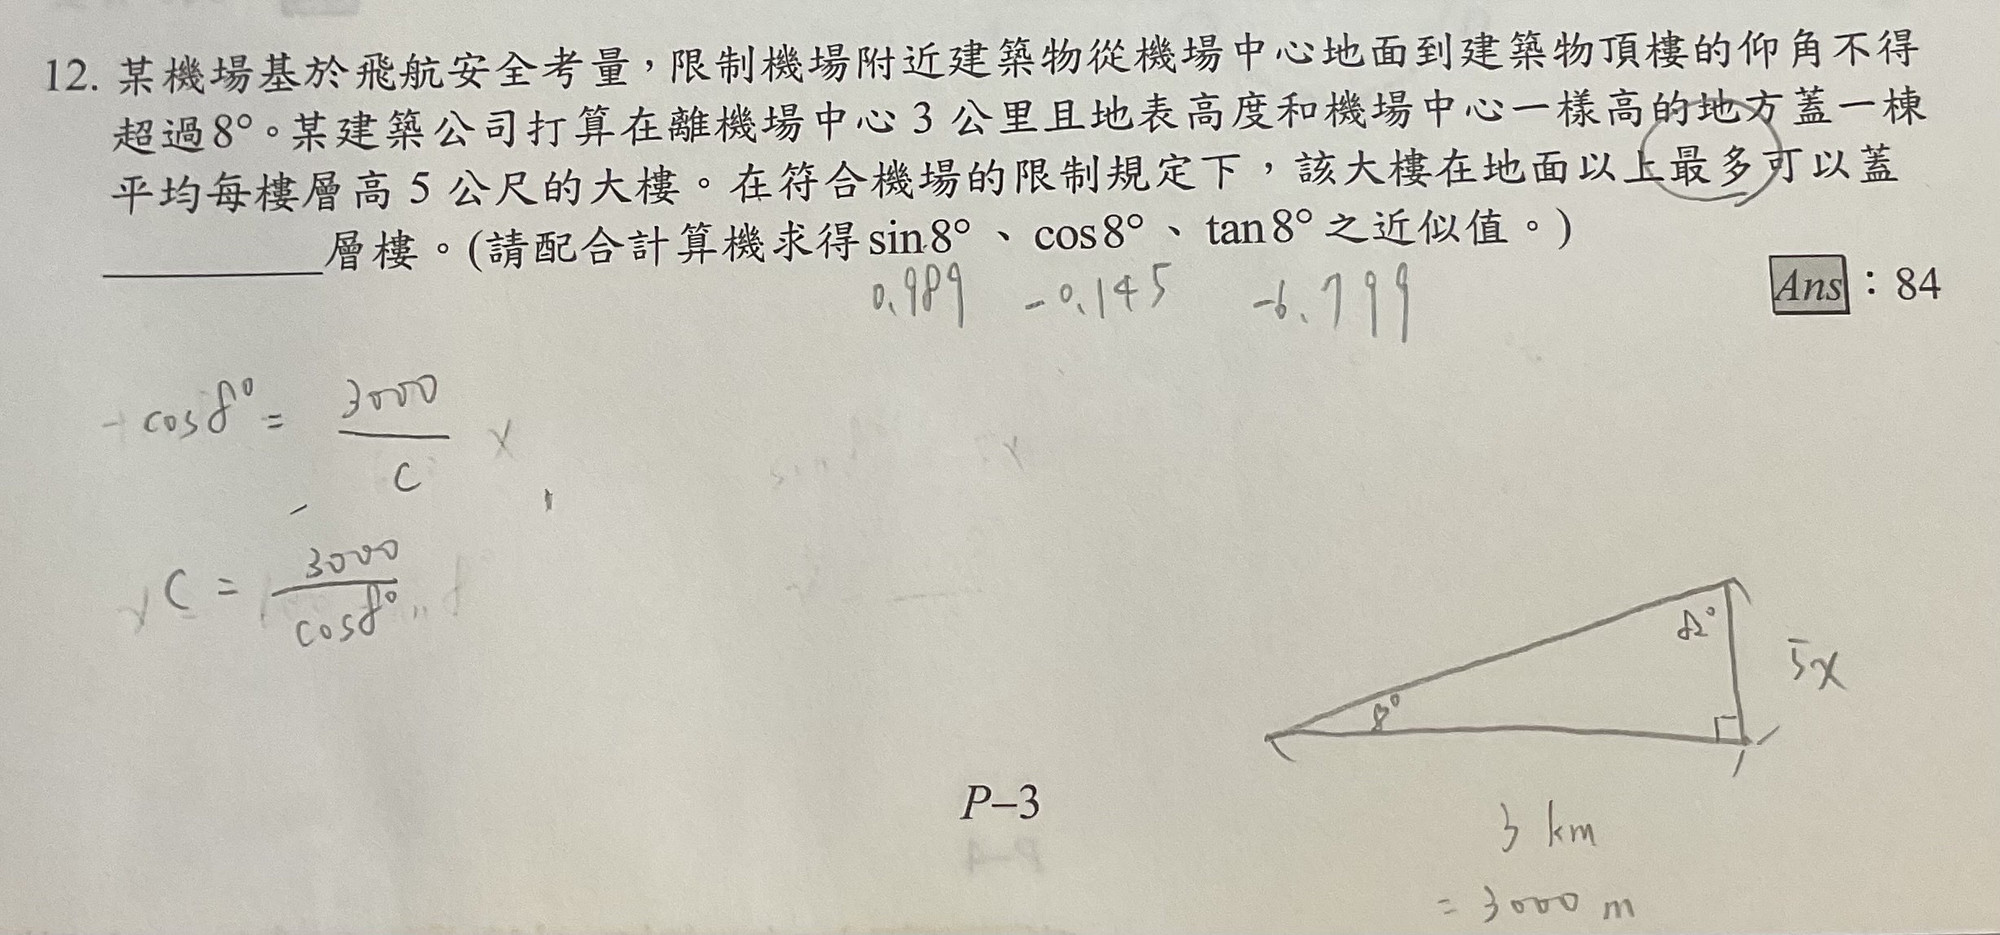 12. 某機場基於飛航安全考量，限制機場附近建築物從機場中心地面到建築物頂樓的仰角不得
超過8°。某建築公司打算在離機場中心 3 公里且地表高度和機場中心一樣高的地方蓋一棟
平均每樓層高 5 公尺的大樓。在符合機場的限制規定下，該大樓在地面以上最多可以蓋
________層樓。(請配合計算機求得 sin8°、cos8°、tan8° 之近似值。)
0.989 -0.145 -6.799
Ans：84
cos8° = 3000/c
c = 3000/cos8°
82°
8°
5x
3 km
= 3000 m
P–3